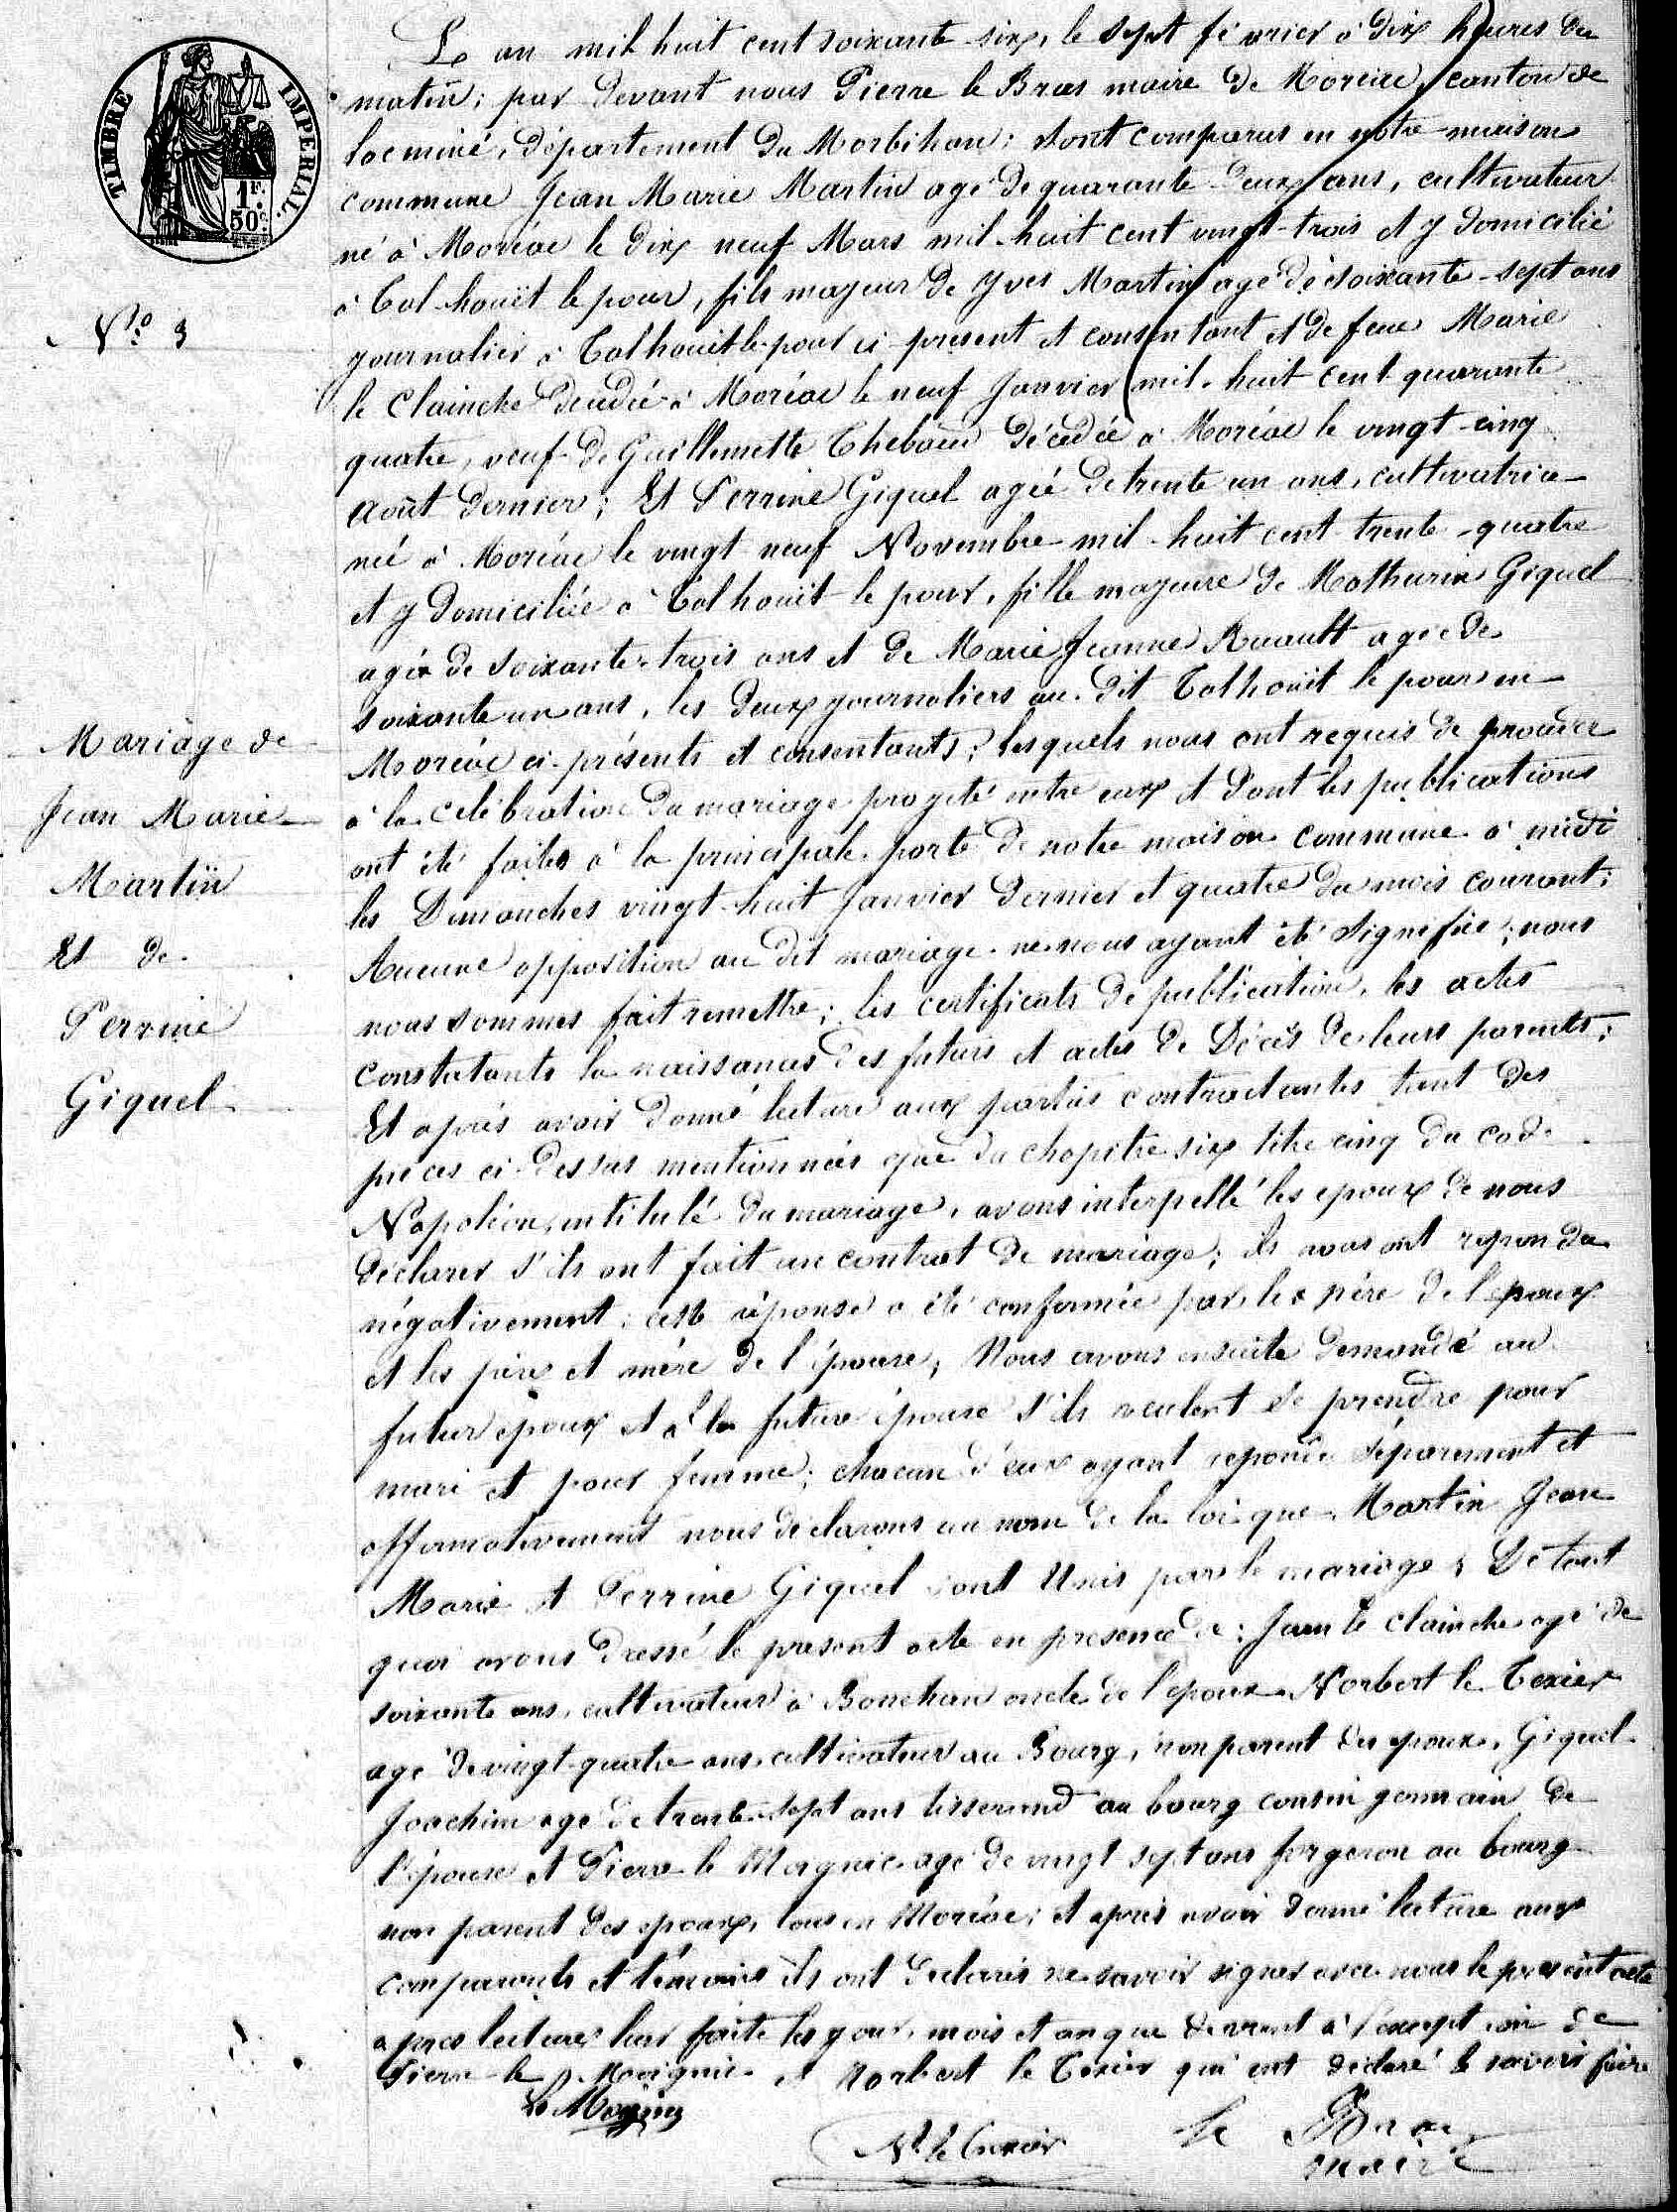 TIMBRE IMPERIAL.
1F.
50c.
N.o 3
Mariage de
Jean Marie
Martin
Et de
Perrine
Giquel
L'an mil huit cent soixante-six, le sept février à dix heures du
matin; par devant nous Pierre le Bras maire de Moréac, canton de
Locminé, département du Morbihan; sont comparus en notre maison
commune Jean Marie Martin agé de quarante deux ans, cultivateur
né à Moréac le dix neuf Mars mil-huit cent vingt-trois et y domicilié
à Tolhouët le pour, fils majeur de Yves Martin agé de soixante-sept ans
journalier à Tolhouët le pour ci present et consentant et de feue Marie
le Clainche décédée à Moréac le neuf Janvier mil-huit cent quarante
quatre, veuf de Guillemette Thebaud décédée à Moréac le vingt-cinq
Août dernier; Et Perrine Giquel agée de trente un ans, cultivatrice
née à Moréac le vingt neuf Novembre mil-huit cent trente-quatre
et y domiciliée à Tolhouët le pour, fille majeure de Mathurin Giquel
agé de soixante-trois ans et de Marie Jeanne Ruault agée de
soixante un ans, les deux journaliers au dit Tolhouët le pour en
Moréac ci-présents et consentants; lesquels nous ont requis de proceder
à la celébration du mariage projeté entre eux et dont les publications
ont été faites à la principale porte de notre maison commune à midi
les Dimanches vingt-huit Janvier dernier et quatre du mois courant;
Aucune opposition au dit mariage ne nous ayant été signifiée; nous
nous sommes fait remettre; les certificats de publication, les actes
constatants la naissance des futurs et actes de Décès de leurs parents;
Et après avoir donné lecture aux parties contractantes tant des
pieces ci-dessus mentionnées que du chapitre six titre cinq du code
Napoléon, intitulé du mariage, avons interpellé les epoux de nous
déclarer s'ils ont fait un contrat de mariage; ils nous ont repondu
négativement; cette réponse a été confirmée par le père de l'epoux
et les père et mère de l'épouse; Nous avons ensuite demandé au
futur epoux et à la future épouse s'ils veulent se prendre pour
mari et pour femme; chacun d'eux ayant repondu séparement et
affirmativement nous declarons au nom de la loi que Martin Jean
Marie et Perrine Giquel sont Unis par le mariage; De tout
quoi avons dressé le present acte en presence de: Jean le Clainche agé de
soixante ans, cultivateur à Bonehan oncle de l'epoux Norbert le Texier
agé de vingt-quatre ans cultivateur au Bourg, non parent des epoux, Giquel
Joachim agé de trente-sept ans tisserand au bourg cousin germain de
l'épouse et Pierre le Moignic agé de vingt sept ans forgeron au bourg
non parent des epoux, tous en Moréac; et après avoir donné lecture aux
comparants et témoins ils ont declarés ne savoir signer avec nous le présent acte
apres lecture leur faite les jour, mois et an que devant à l'exception de
Pierre le Moignic et Norbert le Texier qui ont declaré le savoir faire
Le Moignic
Nt le Texier
Le Bras
maire